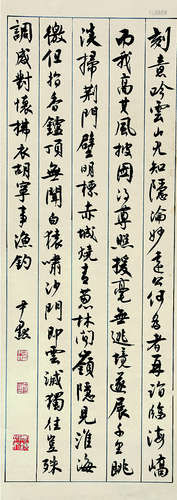 刻意吟雲山尤知隱淪妙遠公何爲者再詣臨海嶠
而我高其風披圖得遺照援毫無逃境遂展千里眺
淡掃荊門壁明標赤城燒青蔥林間嶺隱見淮海
徼但指香鑪頂無聞白猿嘯沙門即雲滅獨往豈殊
調感對懷拂衣胡寧事漁釣 尹默